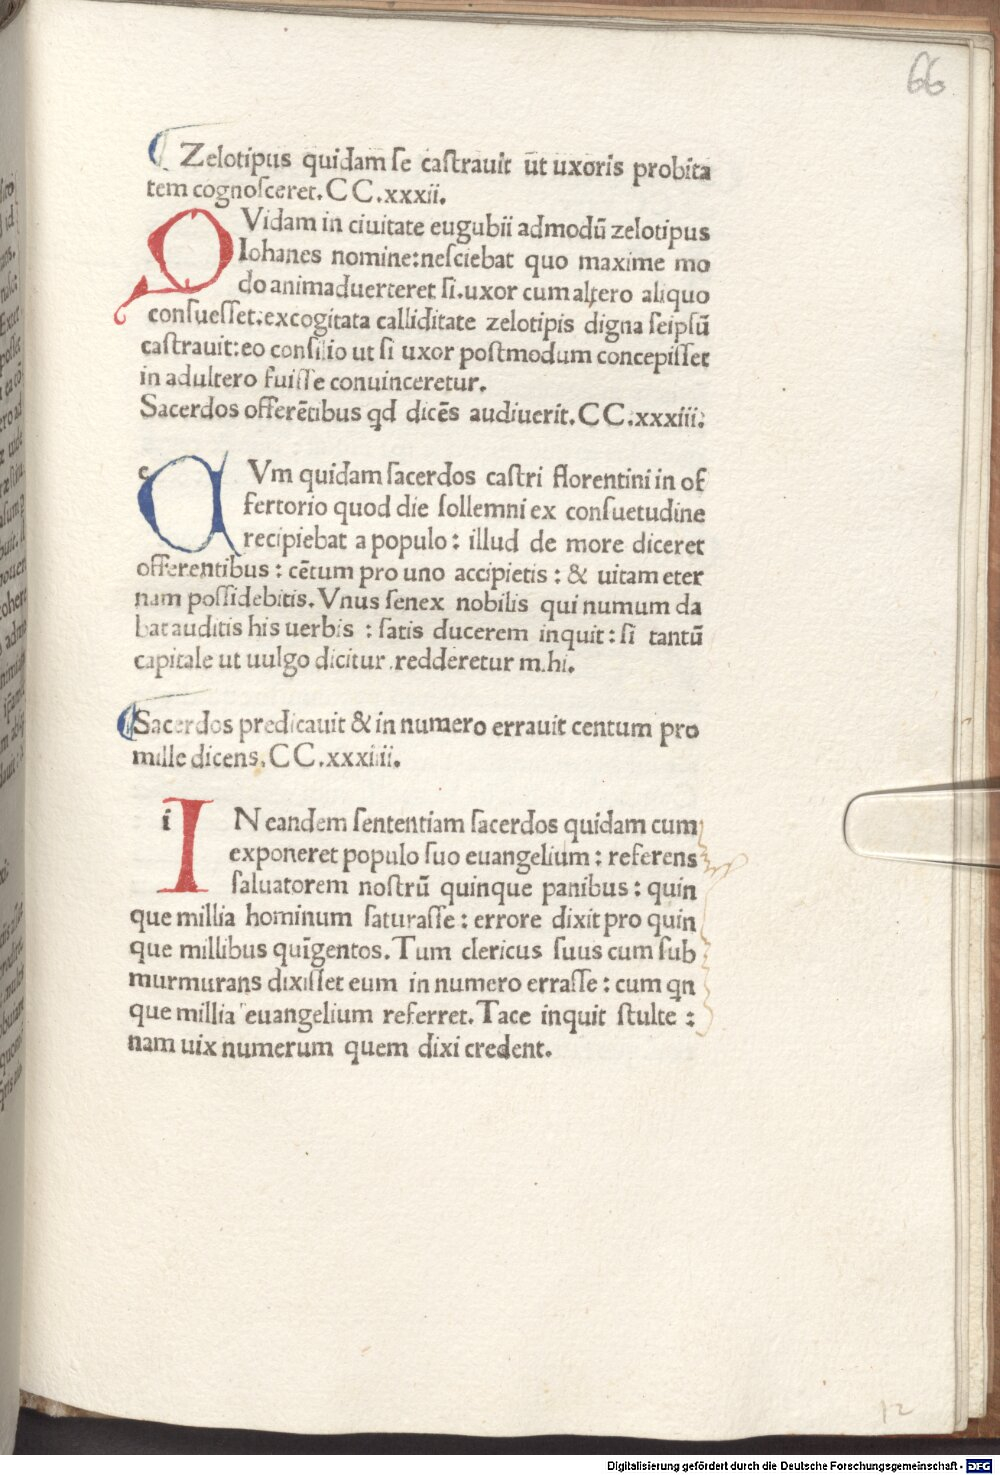 66
Zelotipus quidam se castrauit ut uxoris probita
tem cognosceret. CC.xxxii.
QVidam in ciuitate eugubii admodū zelotipus
Iohanes nomine: nesciebat quo maxime mo
do animaduerteret si. uxor cum altero aliquo
consuesset: excogitata calliditate zelotipis digna seipsū
castrauit: eo consilio ut si uxor postmodum concepisset
in adultero fuisse conuinceretur.
Sacerdos offerētibus qd dicēs audiuerit. CC.xxxiii:
c Vm quidam sacerdos castri florentini in of
fertorio quod die sollemni ex consuetudine
recipiebat a populo: illud de more diceret
offerentibus: cētum pro uno accipietis: & uitam eter
nam possidebitis. Vnus senex nobilis qui numum da
bat auditis his uerbis: satis ducerem inquit: si tantū
capitale ut uulgo dicitur redderetur m.hi.
Sacerdos predicauit & in numero errauit centum pro
mille dicens. CC.xxxiiii.
i IN eandem sententiam sacerdos quidam cum
exponeret populo suo euangelium: referens
saluatorem nostrū quinque panibus: quin
que millia hominum saturasse: errore dixit pro quin
que millibus quīgentos. Tum clericus suus cum sub
murmurans dixisset eum in numero errasse: cum qn
que millia euangelium referret. Tace inquit stulte:
nam uix numerum quem dixi credent.
12
Digitalisierung gefördert durch die Deutsche Forschungsgemeinschaft - DFG